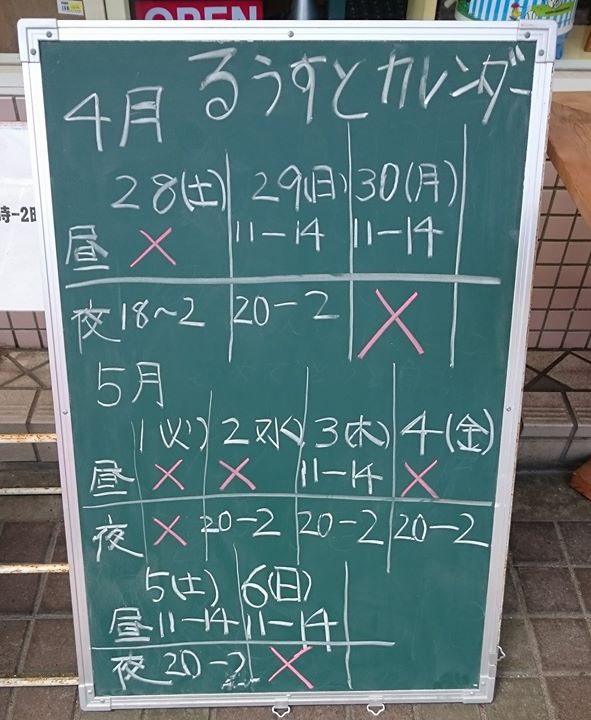 OPEN
るうすとカレンダー
4月
28(土) 29(日) 30(月)
昼 × 11-14 11-14
夜 18~2 20-2 ×
5月
1(火) 2(水) 3(木) 4(金)
昼 × × 11-14 ×
夜 × 20-2 20-2 20-2
5(土) 6(日)
昼 11-14 11-14
夜 20-2 ×
時-2時